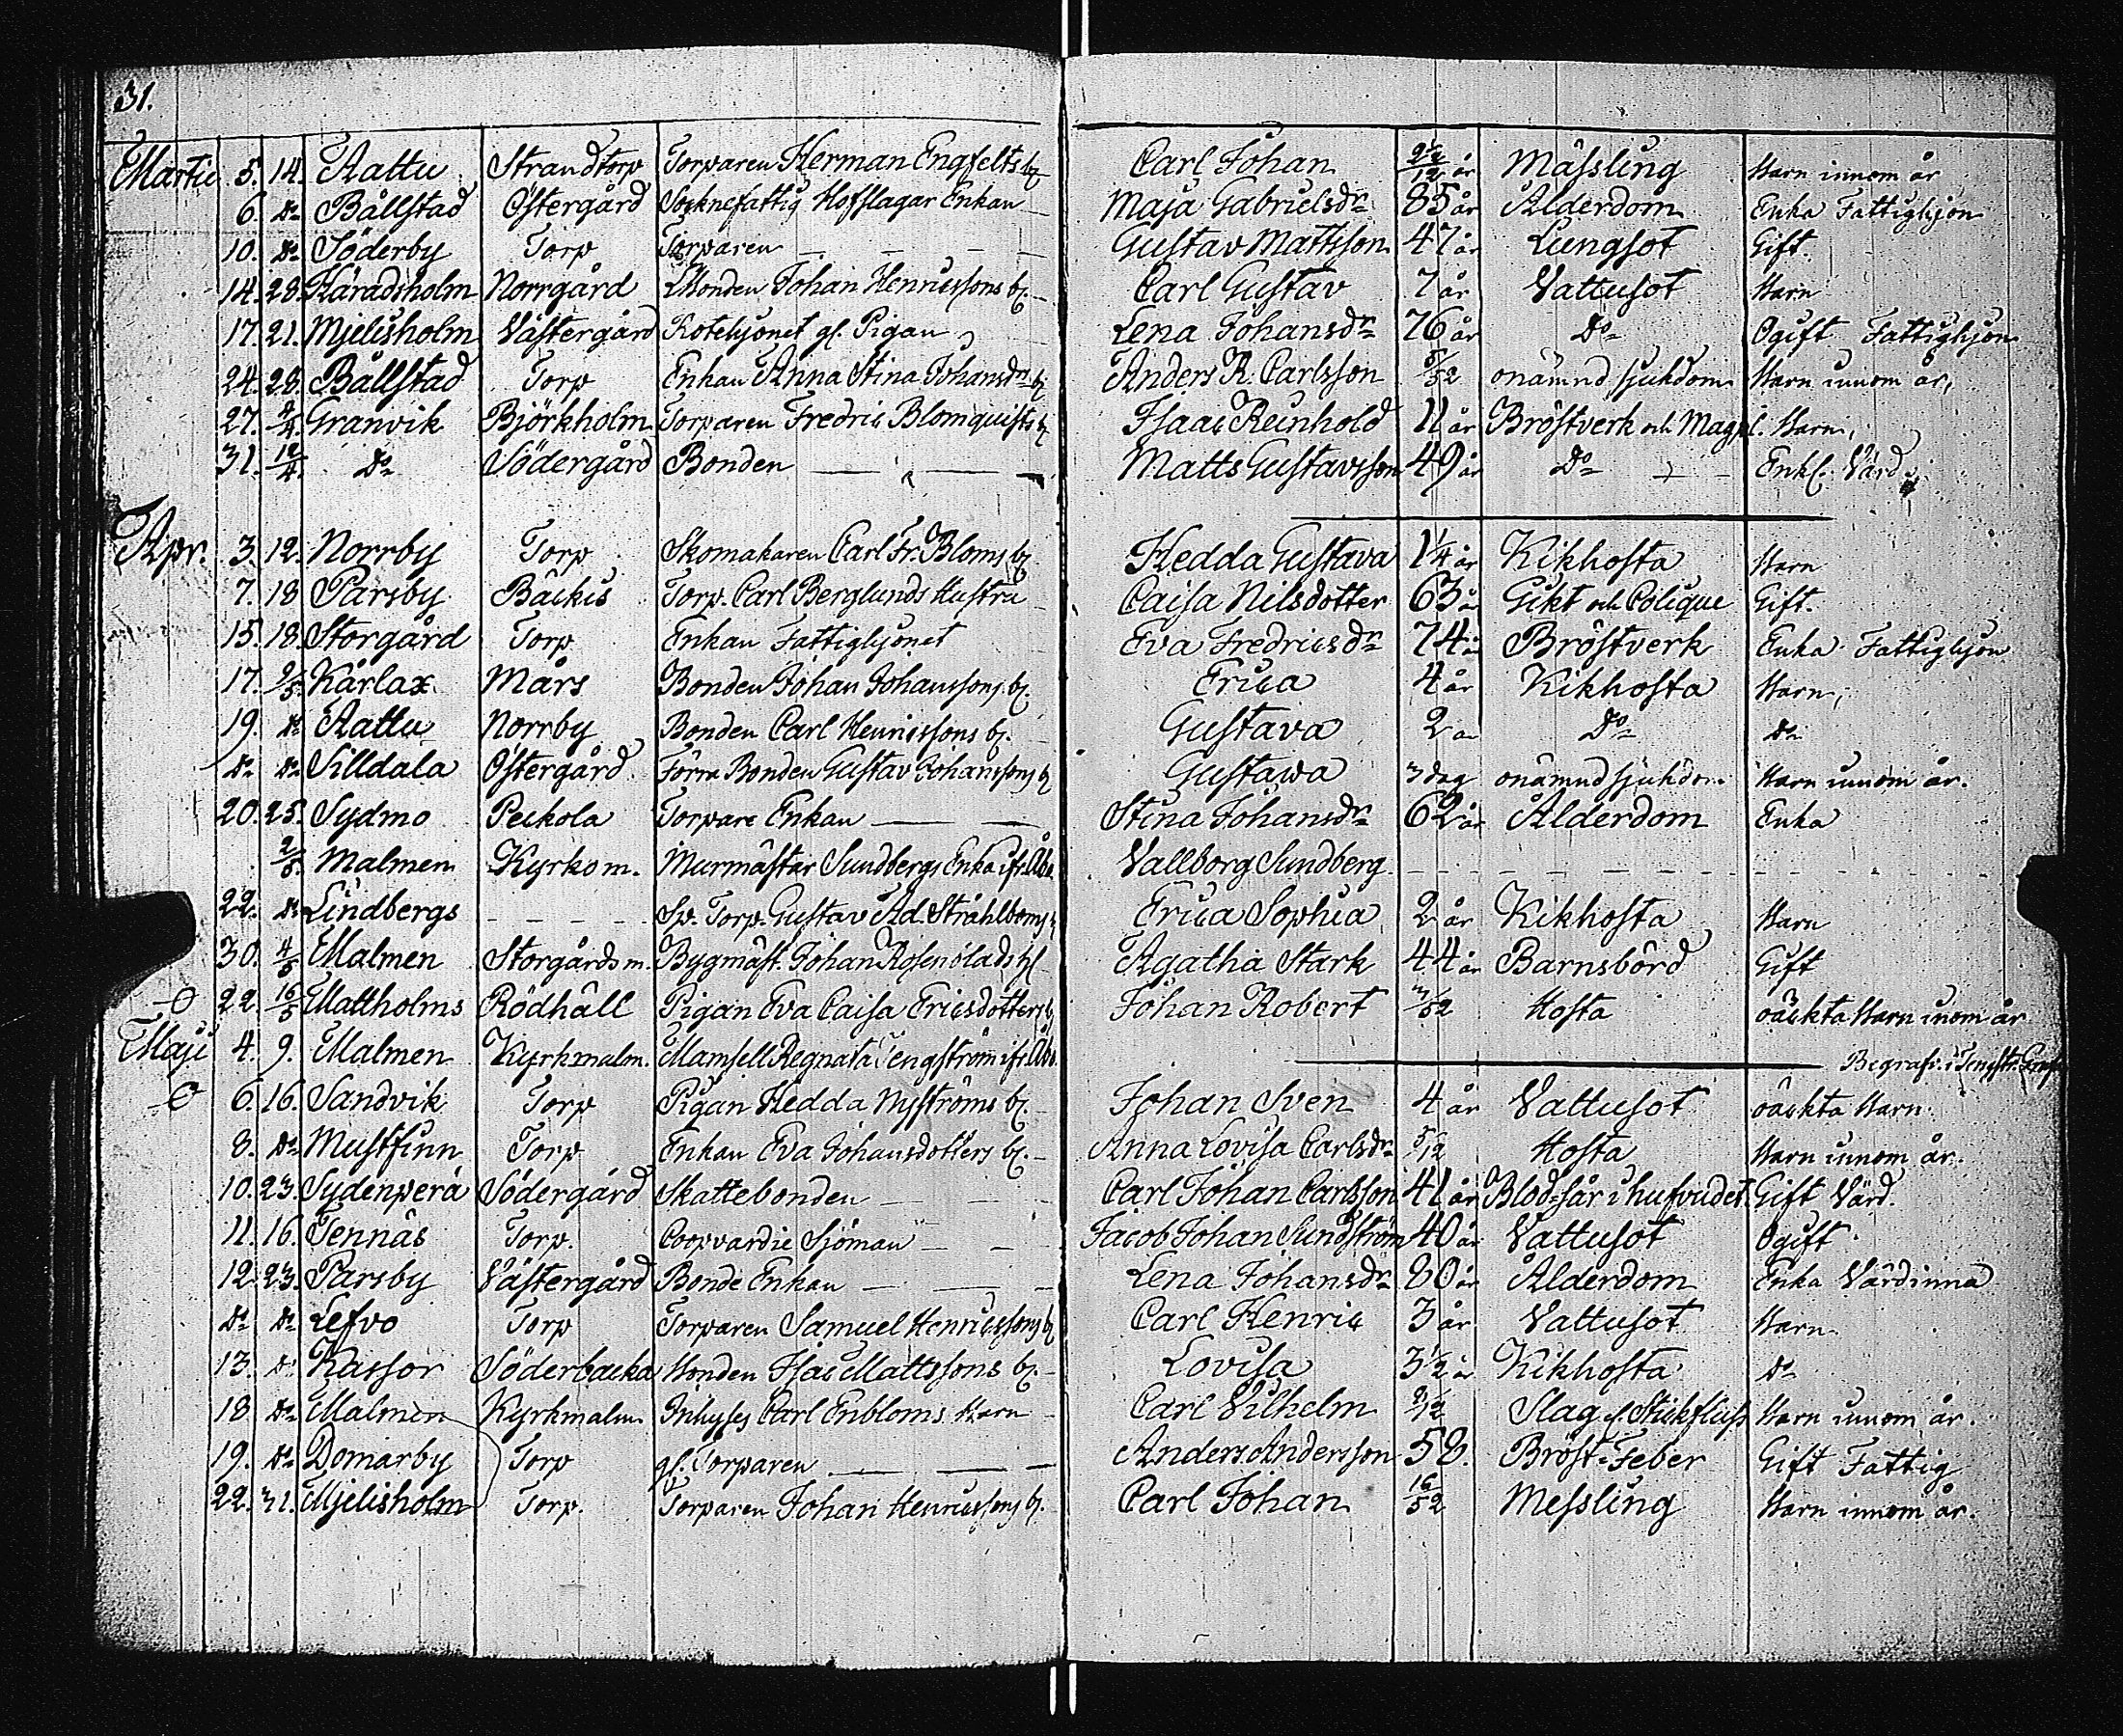 31.
Martii 5. 14. Aattu Strandtorp Torparen Herman Engfelts b. Carl Johan 2½/12 år Mässling Barn innom år
6. Do Bällstad Östergård Socknefattig Hofslagar Enkan Maja Gabrielsdr 85 år Ålderdom Enka Fattighjon
10. Do Söderby Torp Torparen Gustav Mattsson 47 år Lungsot Gift.
14. 28. Häradsholm Norrgård Bonden Johan Henricssons b. Carl Gustav 7 år Vattusot Barn
17. 21. Mjelisholm Västergård Rotehjonet gl. Pigan Lena Johansdr 76 år Do Ogift Fattighjon
24. 28. Bällstad Torp Enkan Anna Stina Johansdrs b. Anders R. Carlsson 5/52 onämnd sjukdom Barn innom år,
27. 4/4. Granvik Björkholm Torparen Fredric Blomquists b. Isaac Reinhold 11 år Bröstverk och Magpl. Barn,
31. 12/4. Do Södergård Bonden Matts Gustavsson 49 år Do Enkl. Värd
Apr. 3. 12. Norrby Torp Skomakaren Carl Fr. Bloms b. Hedda Gustava 1¼ år Kikhosta Barn
7. 18 Pärsby Bäckis Torp. Carl Berglunds Hustru Caisa Nilsdotter 63 år Gikt och Colique Gift.
15. 18. Storgård Torp Enkan Fattighjonet Eva Fredricsdr 74 år Bröstverk Enka Fattighjon
17. 2/5. Kärlax Mårs Bonden Johan Johanssons b. Erica 4 år Kikhosta Barn,
19. Do Aattu Norrby Bonden Carl Henricssons b. Gustava 2 år Do Do
Do Do Silldala Östergård Förra Bonden Gustav Johanssons b. Gustava 3 dag onämnd sjukdom Barn innom år.
20. 25. Sydmo Peckola Torpare Enkan Stina Johansdr 62 år Ålderdom Enka
2/5. Malmen Kyrkom. Murmästar Sundbergs Enka ifr. Åbo Vallborg Sundberg
22. Do Lindbergs Sp. Torp. Gustav Ad. Stråhlboms b. Erica Sophia 2 år Kikhosta Barn
30. 4/5 Malmen Storgårdsm. Bygmäst. Johan Rosenblads h. Agatha Stark 44 år Barnsbörd Gift
22. 16/5 Mattholms Rödhäll Pigan Eva Caisa Ericsdotters b. Johan Robert 3/52 Hosta oäckta Barn inom år
Maji 4. 9. Malmen Kyrkmalm. Mamsell Regnata Tengström ifr. Åbo. Begrafv. i Tengstr. Graf
6. 16. Sandvik Torp Pigan Hedda Nyströms b. Johan Sven 4 år Vattusot oäckta Barn.
8. Do Mustfinn Torp Enkan Eva Johansdotters b. Anna Lovisa Carlsdr 5/12 Hosta Barn innom år.
10. 23. Sydenperä Södergård Skattebonden Carl Johan Carlsson 41 år Blod-sår i hufvudet. Gift Värd.
11. 16. Tennäs Torp. Coopvardie Sjöman Jacob Johan Sundström 40 år Vattusot Ogift
12. 23. Pärsby Västergård Bonde Enkan Lena Johansdr 80 år Ålderdom Enka Värdinna
Do Do Lefvo Torp Torparen Samuel Henricssons b. Carl Henric 3 år Vattusot Barn
13. Do Kassor Söderbacka Bonden Isac Mattssons b. Lovisa 3½ år Kikhosta Do
18 Do Malmen Kyrkmalm Inhyses Carl Enbloms Barn Carl Vilhelm Slag o. Stickfluss Barn innom år.
19. Do Domarby Torp gl. Torparen Anders Andersson 58. Bröst-Feber Gift Fattig
22. 31. Mjelisholm Torp. Torparen Johan Henricssons b. Carl Johan 16/52 Messling Barn innom år.